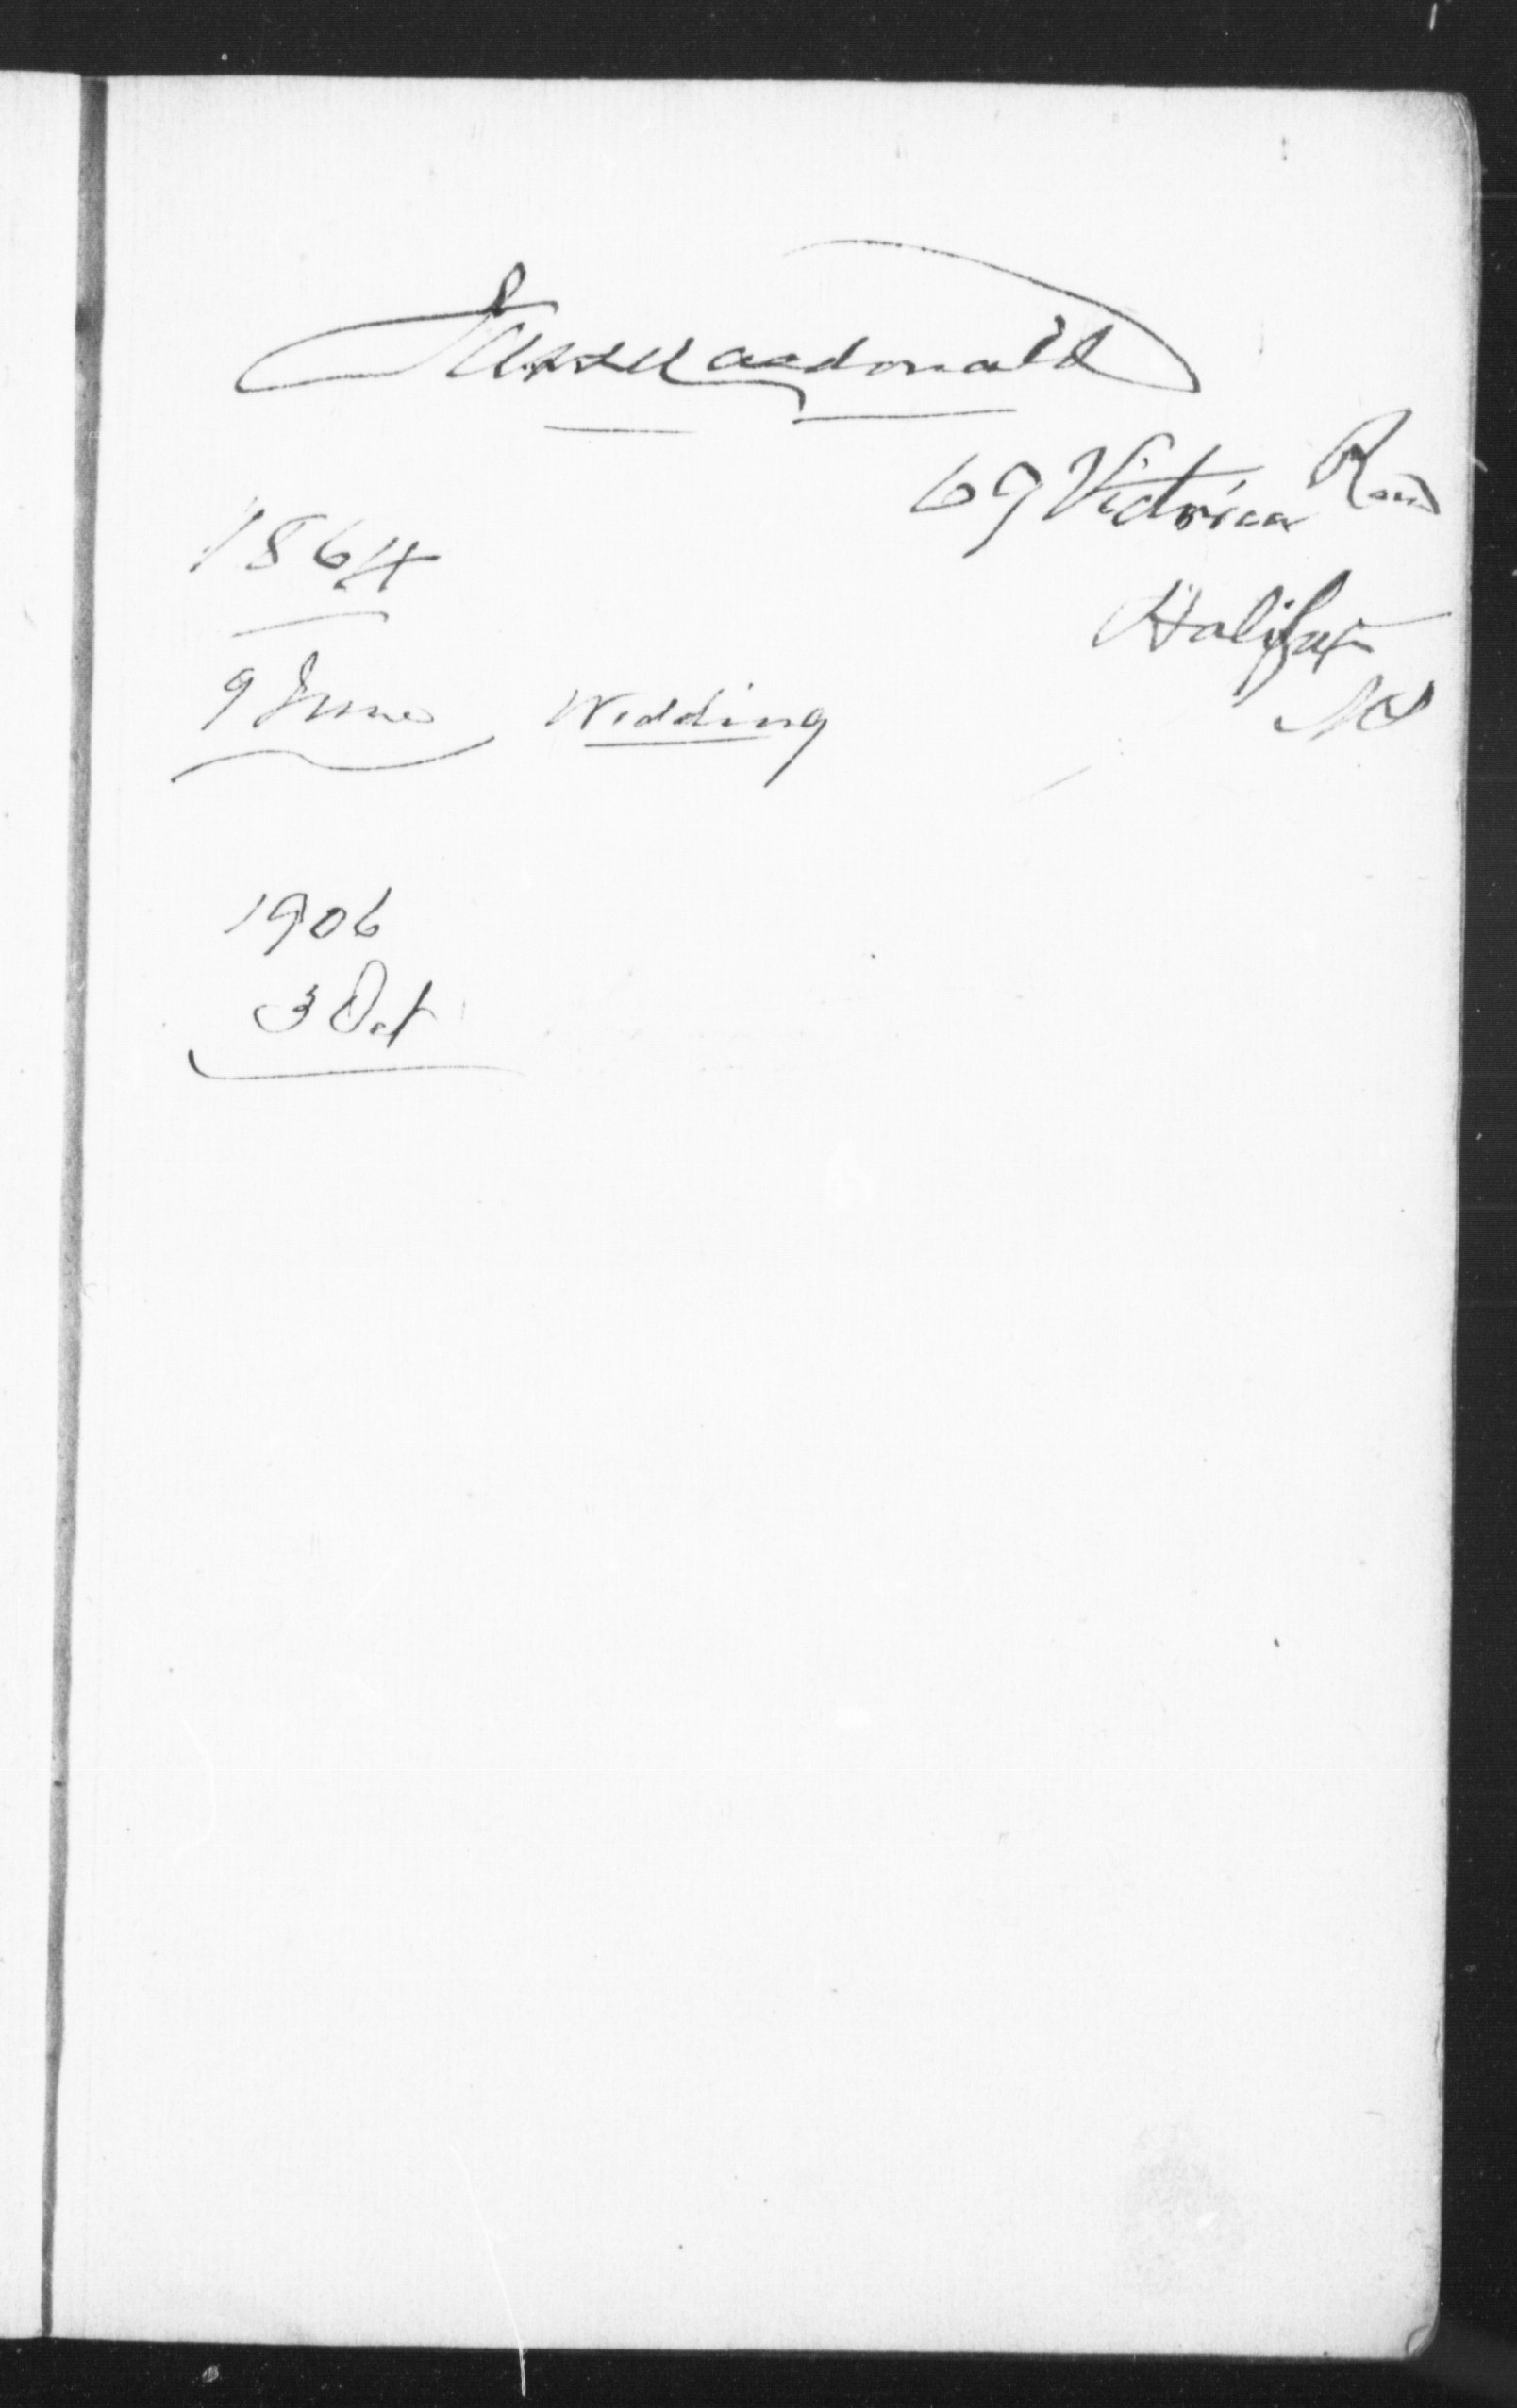 Macdonald
69 Victoria Road
Halifax
NS
1864
9 June Wedding
1906
3 Oct